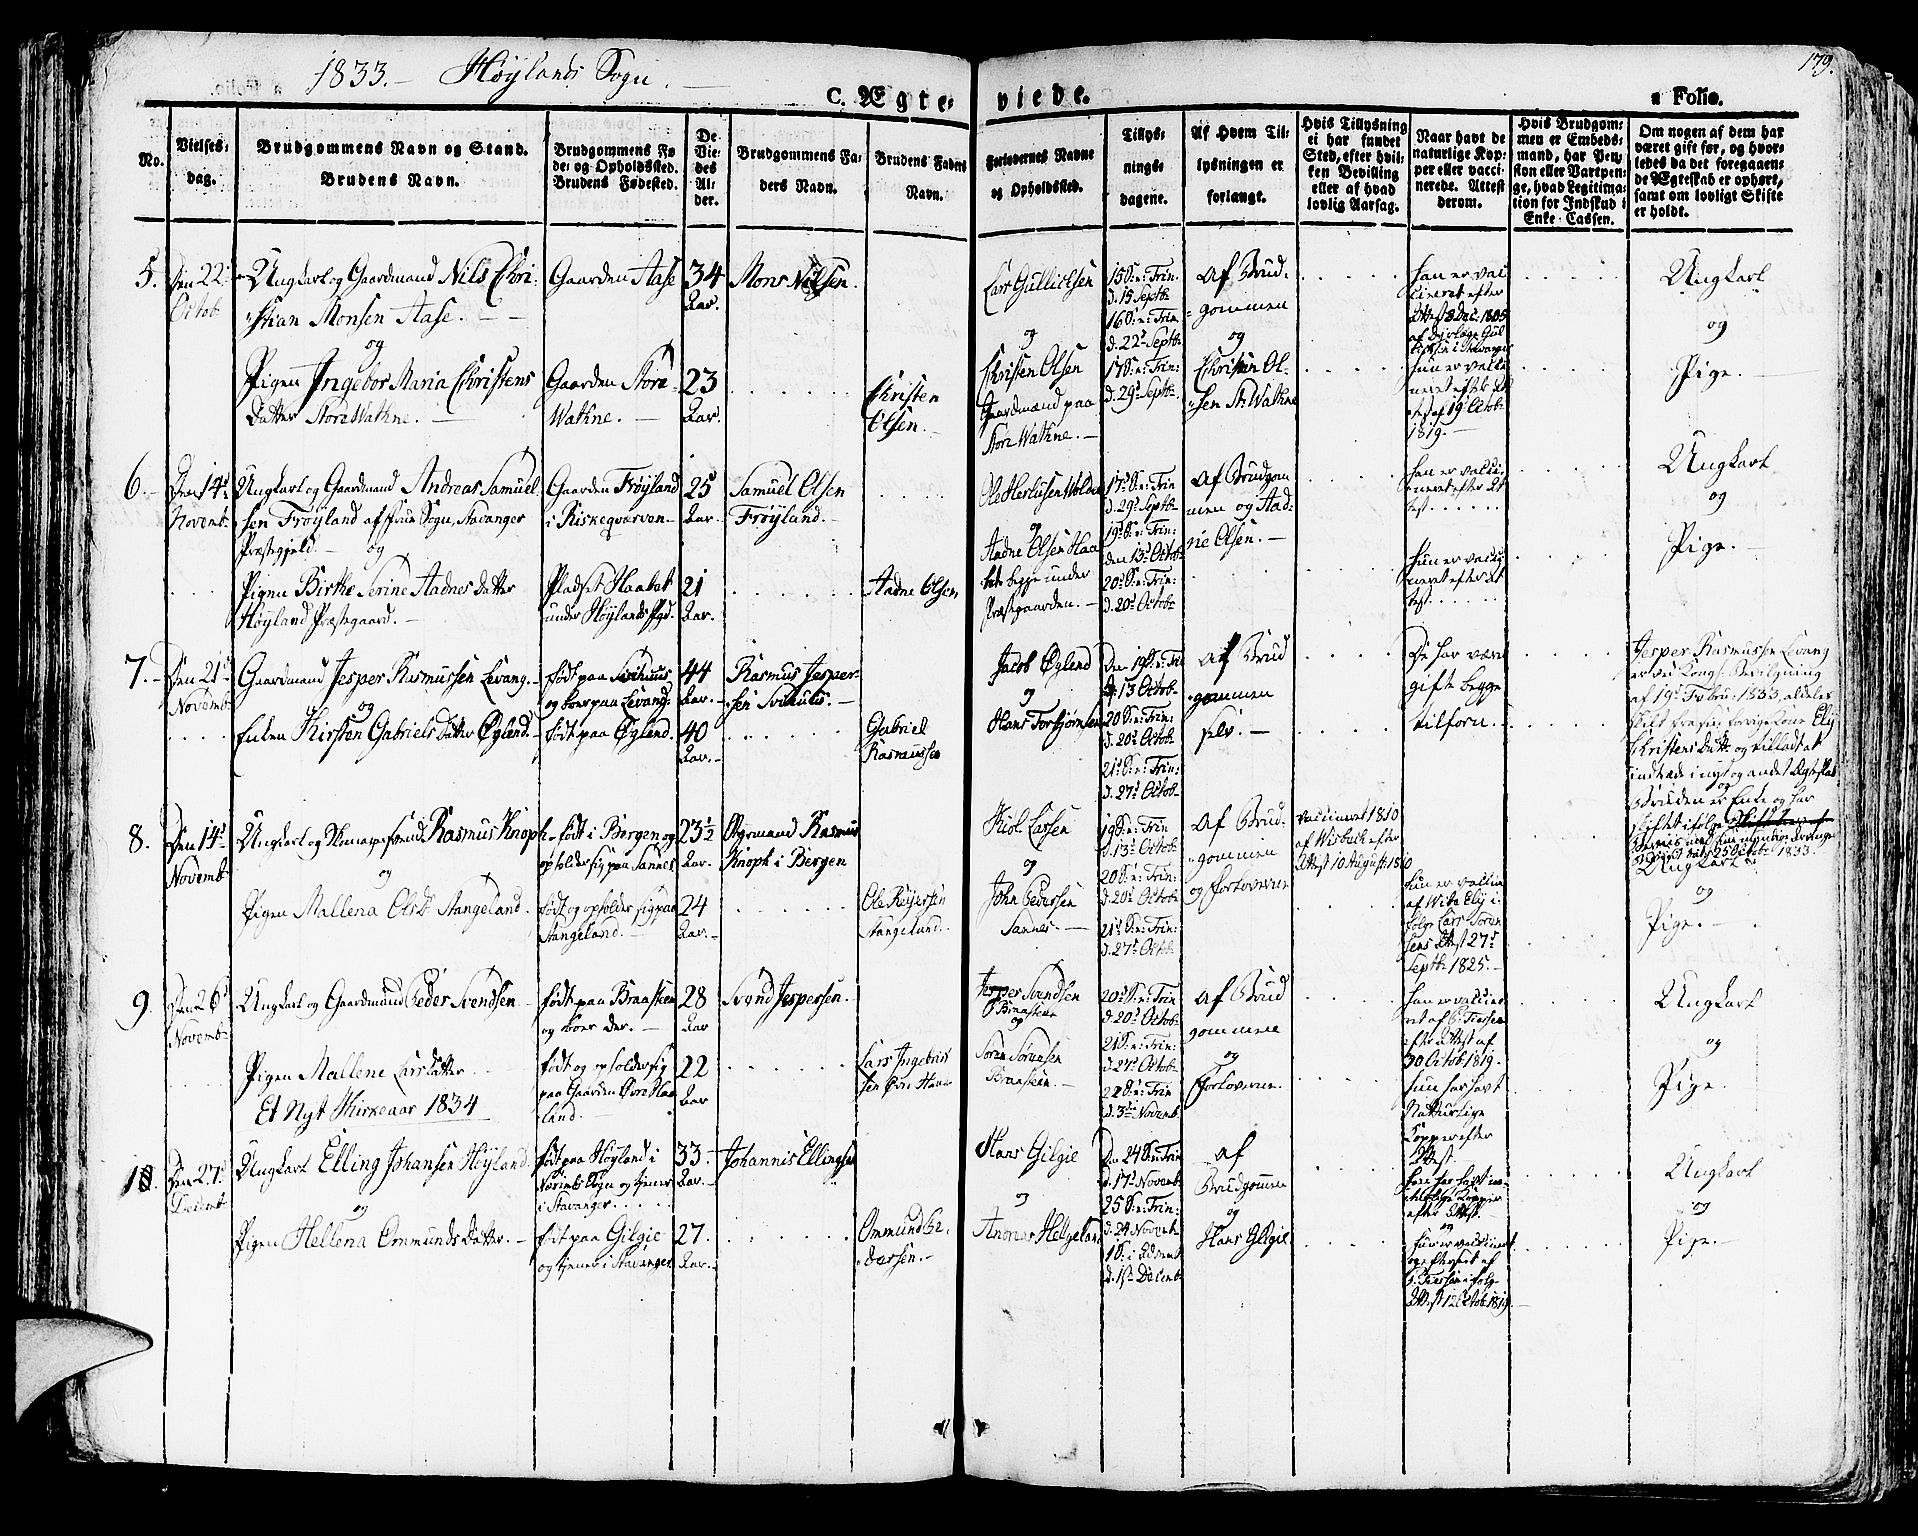 1833. — Høylands Sogn. —
179.
C. Ægte-
viede.
a Folio.
No.
Vielses-
dag.
Brudgommens Navn og Stand.
Brudens Navn.
Brudgommens Fø-
de- og Opholdssted.
Brudens Fødested.
De
Vie-
des
Al-
der.
Brudgommens Fa-
ders Navn.
Brudens Faders
Navn.
Forlovernes Navne
og Opholdssted.
Tillys-
nings-
dagene.
Af Hvem Til-
lysningen er
forlangt.
Hvis Tillysning
ei har fundet
Sted, efter hvil-
ken Bevilling
eller af hvad
lovlig Aarsag.
Naar havt de
naturlige Kop-
per eller vacci-
nerede. Attest
derom.
Hvis Brudgom-
men er Embeds-
mand, har Pen-
sion eller Vartpen-
ge, hvad Legitima-
tion for Indskud i
Enke-Cassen.
Om nogen af dem har
været gift før, og hvor-
ledes da det foregaaen-
de Ægteskab er ophørt,
samt om lovligt Skifte
er holdt.
5.
Den 22
Octob
Ungkarl og Gaardmand Nils Chri-
stian Monsen Aase.
og
Pigen Ingebor Maria Christens
Datter Store Wathne. —
Gaarden Aase
Gaarden Store
Wathne. —
34
Aar.
23
Aar.
Mons Nilsen.
Christen
Olsen.
Lars Gullichsen
og
Christen Olsen
Gaardmand paa
Store Wathne. —
15 S: e: Trin:
d. 15 Septb
16 S: e: Trin
d. 22 Septb
17 S: e: Trin:
d. 29 Septb.
Af Brud-
gommen
og
Christen Ol-
sen St. Wathne
1819. —
Ungkarl
og
Pige.
6. —
Den 14
Novemb
Ungkarl og Gaardmand Andreas Samuel-
sen Frøyland af Sogn, Stavanger
Præstegjeld. — og
Pigen Birthe Serine Aadnes Datter
Høyland Præstegaard. —
Gaarden Frøyland
i Riskeqværven —
Pladset Haabet
under Høylands Pgd.
25
Aar.
21
Aar.
Samuel Olsen
Frøyland. —
Aadne Olsen
og
Aadne Olsen Haa
bet begge under
Præstegaarden. —
17 S: e: Trin
d. 29 Septb
19 S: e: Trin:
den 13 Octob
20 S: e: Trin:
d. 20 Octob
Af Brudgom
men og Aad-
ne Olsen. —
Ungkarl
og
Pige. —
7. —
Den 21
Novemb
Gaardmand Jesper Rasmussen Levang. —
og
Enken Kirsten Gabriels Datter Øglend. —
født paa Svihuus
og boer paa Levang.
født paa Øglend.
44
Aar. —
40
Aar. —
Rasmus Jesper-
sen Svihuus. —
Gabriel
Rasmussen
Jacob Øglend
og
Hans Torbjørnsen
Den 19 S: e: Tri
d. 13 Octob
20 S: e: Trin:
d. 20 Octob
21 S: e: Trin:
d. 27 Octob
Af Brud
gommen
selv. —
De har være
gifte begge
tilforn. —
Jesper Rasmussen Levang
er ved Kongl: Bevilgning
af 19 Febru: 1833 aldeles
skilt fra sin forige Kone Elij
Christens Datt: og tilladt at
indtræde i nyt og andet Ægteskab
og
Bruden er Enke og har
skiftet ifølge
25 Octob 1833.
8.
Den 14
Novemb
Ungkarl og Rasmus Knoph —
og
Pigen Mallena Ols D. Stangeland.
født i Bergen og
opholder sig paa Sannes
født og opholder sig paa
Stangeland. —
23 ½
Aar.
24
Aar. —
Rasmus
Knoph i Bergen
Ole Reijersen
Stangeland.
Kiol Larsen
og
John Pedersen
Sannes. —
19 S: e: Trin
d. 13 Octob
20 S: e: Trin:
d. 20 Octob
21 S: e: Trin:
d. 27 Octob
Af Brud-
gommen
og Forloverne
vaccineret 1810
af Wisbech efter
Attest 10 August 1810
Hun er vaccin
af Witt Elij i-
følge Lars Søren
sens Attest 27
Septb 1825. —
Ungkarl
og
Pige. —
9.
Den 26
Novemb
Ungkarl og Gaardmand Peder Svendsen
Pigen Mallene Larsdatter
født paa Braasteen
og boer der. —
født og opholder sig
paa Gaarden Øvre Haa
land. —
28
Aar
22
Aar
Svend Jespersen.
Lars Ingebrit
sen Øvre Haal
Jesper Svendsen
Braasteen
og
Søren Sørensen
Braasteen. —
20 S: e: Trin
d. 20 Octob.
21 S: e: Trin:
d. 27 Octob
22 S: e: Trin
d. 3die Novemb
Af Brud
gommene
og
Forloverne.
Han er vaccine
ret af
efter Attest af
30 Octob 1819.
Hun har havt
Naturlige
Kopper efter
Attest.
Ungkarl
og
Pige.
Et Nyt Kirkeaar 1834
10.
Den 27
Decemb
Ungkarl Elling Johansen Høyland
og
Pigen Hellena Ommunds Datter. —
født paa Høyland i
Nærims Sogn og tjener
i Stavanger
født paa Gilgie
og tjener i Stavanger
33
Aar. —
27.
Aar. —
Johannis Ellingsen
Ommund Pe-
dersen. —
Hans Gilgie
og
Andreas Helgeland
Den 24 S: e: Trin
d. 17 Novemb
25 S: e: Trin:
d. 24 Novemb
1 S: i Advent
d. 1ste Decemb
af
Brudgommen
og
Hans Gilgie
Han har havt na-
turlige Kopper
efter Attest.
og
Hun er vaccineret
Attest 12 Octob 1819
Ungkarl
og
Pige. —